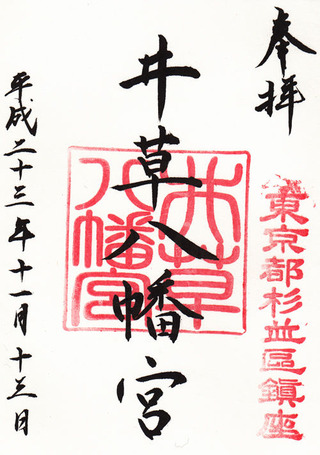 奉拝
東京都杉並區鎮座
井草八幡宮
井草八幡宮
平成二十三年十一月十三日